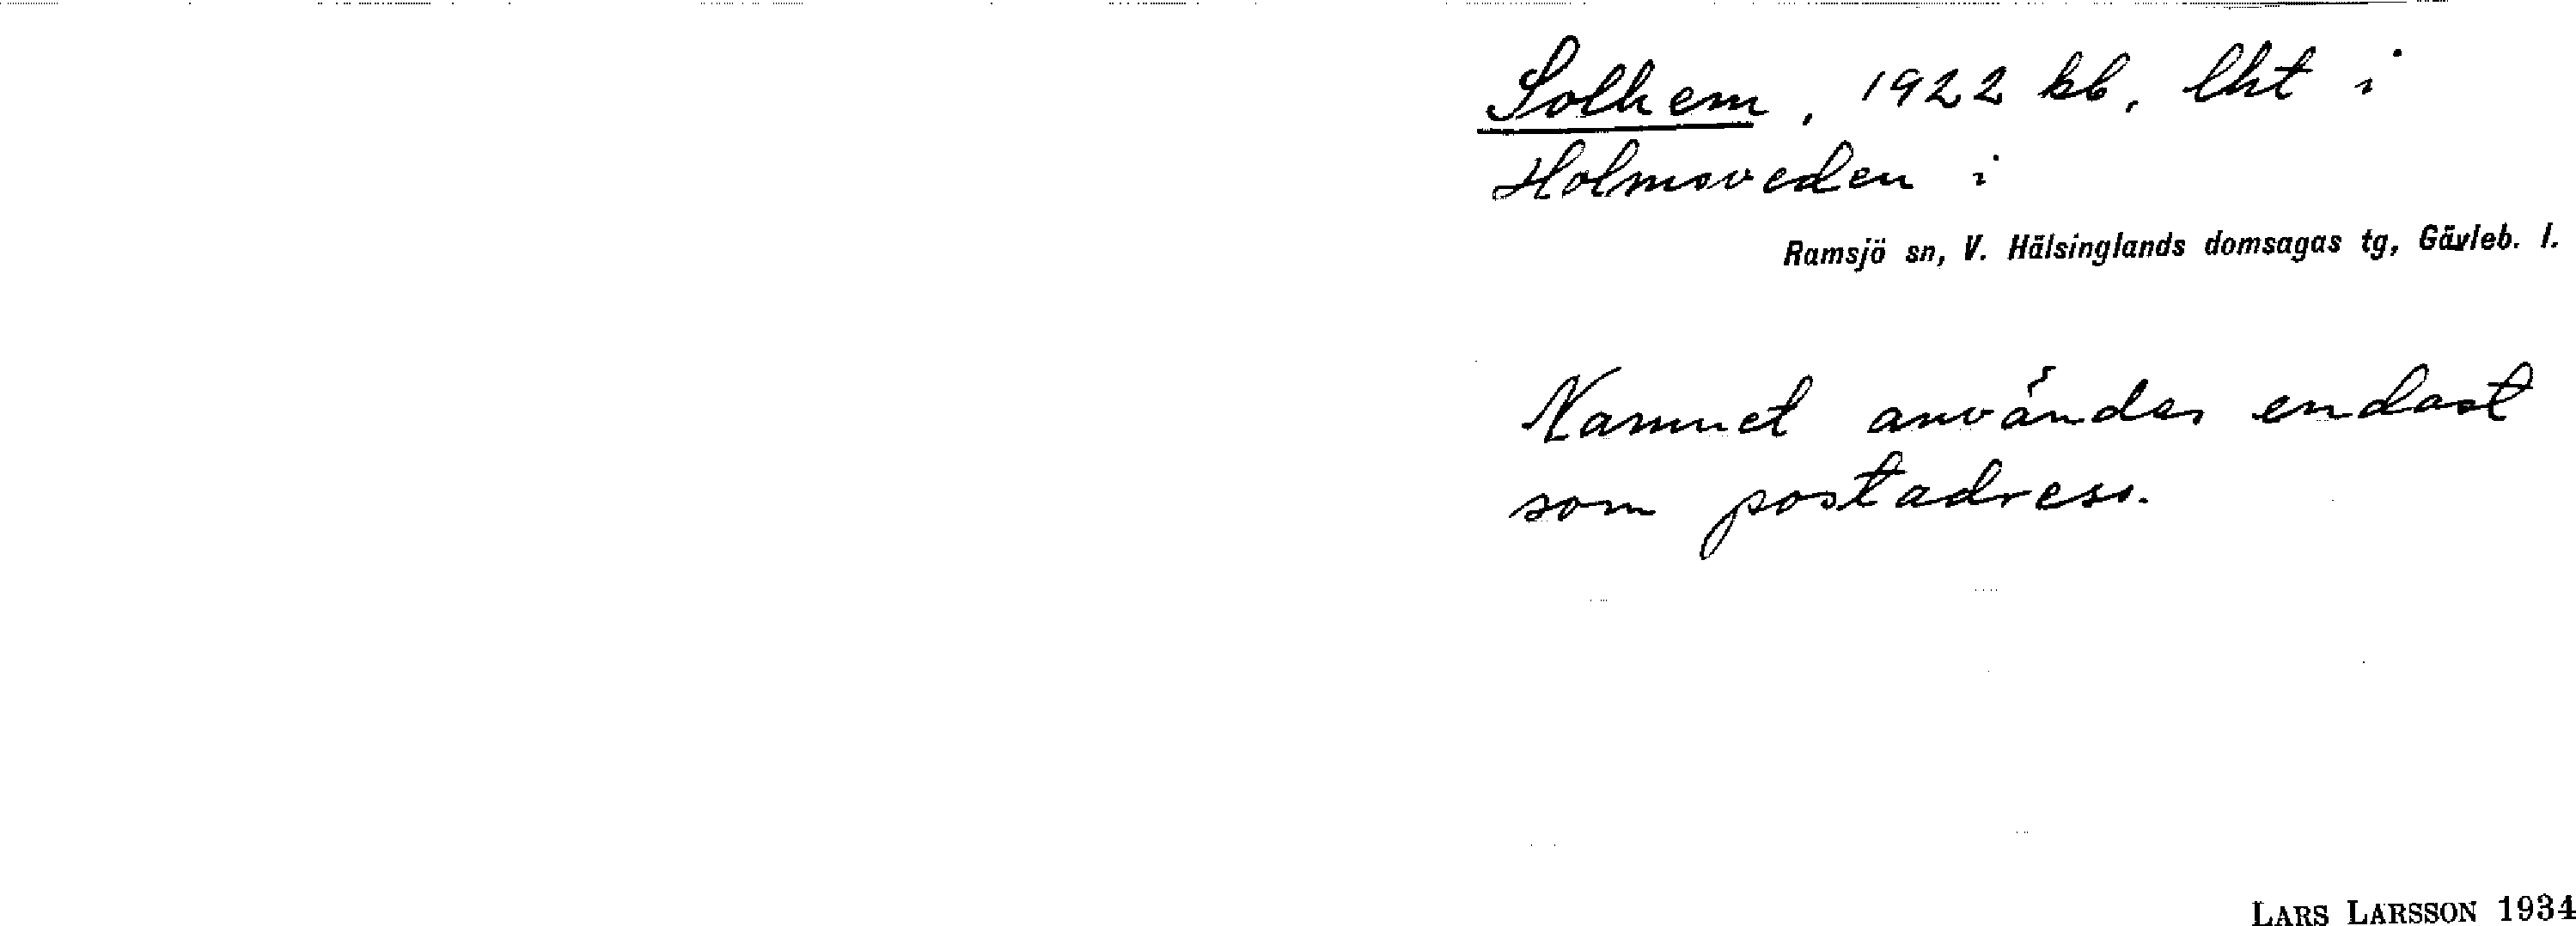 Solhem, 1922 kb, lht i
Holmsveden i
Ramsjö sn, V. Hälsinglands domsagas tg, Gävleb. l.
Namnet användes endast
som postadress.
LARS LARSSON 1934